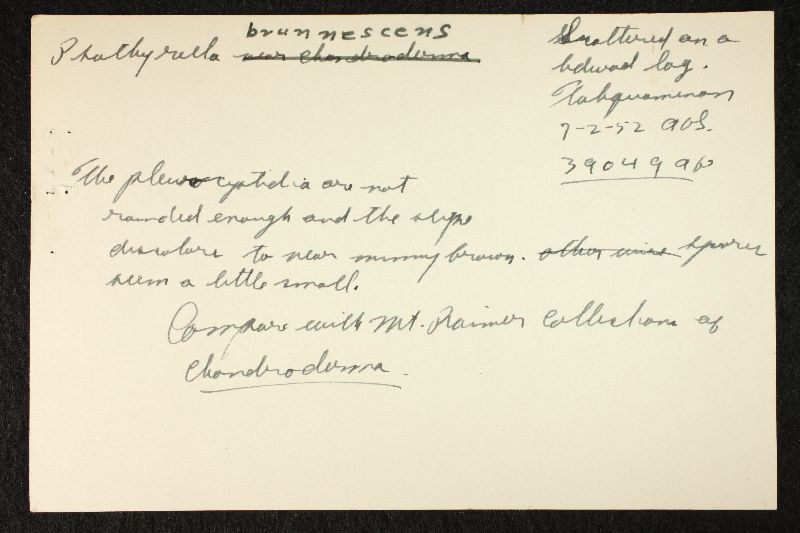 brunnescens
Psathyrella near chondroderma
Scattered on a
hdwood log.
Tahquamenon
7-2-52 AHS.
39049
The pleurocystidia are not
rounded enough and the stipe
discolors to near mummy brown. otherwise spores
seem a little small.
Compare with Mt. Rainier collections of
chondroderma.